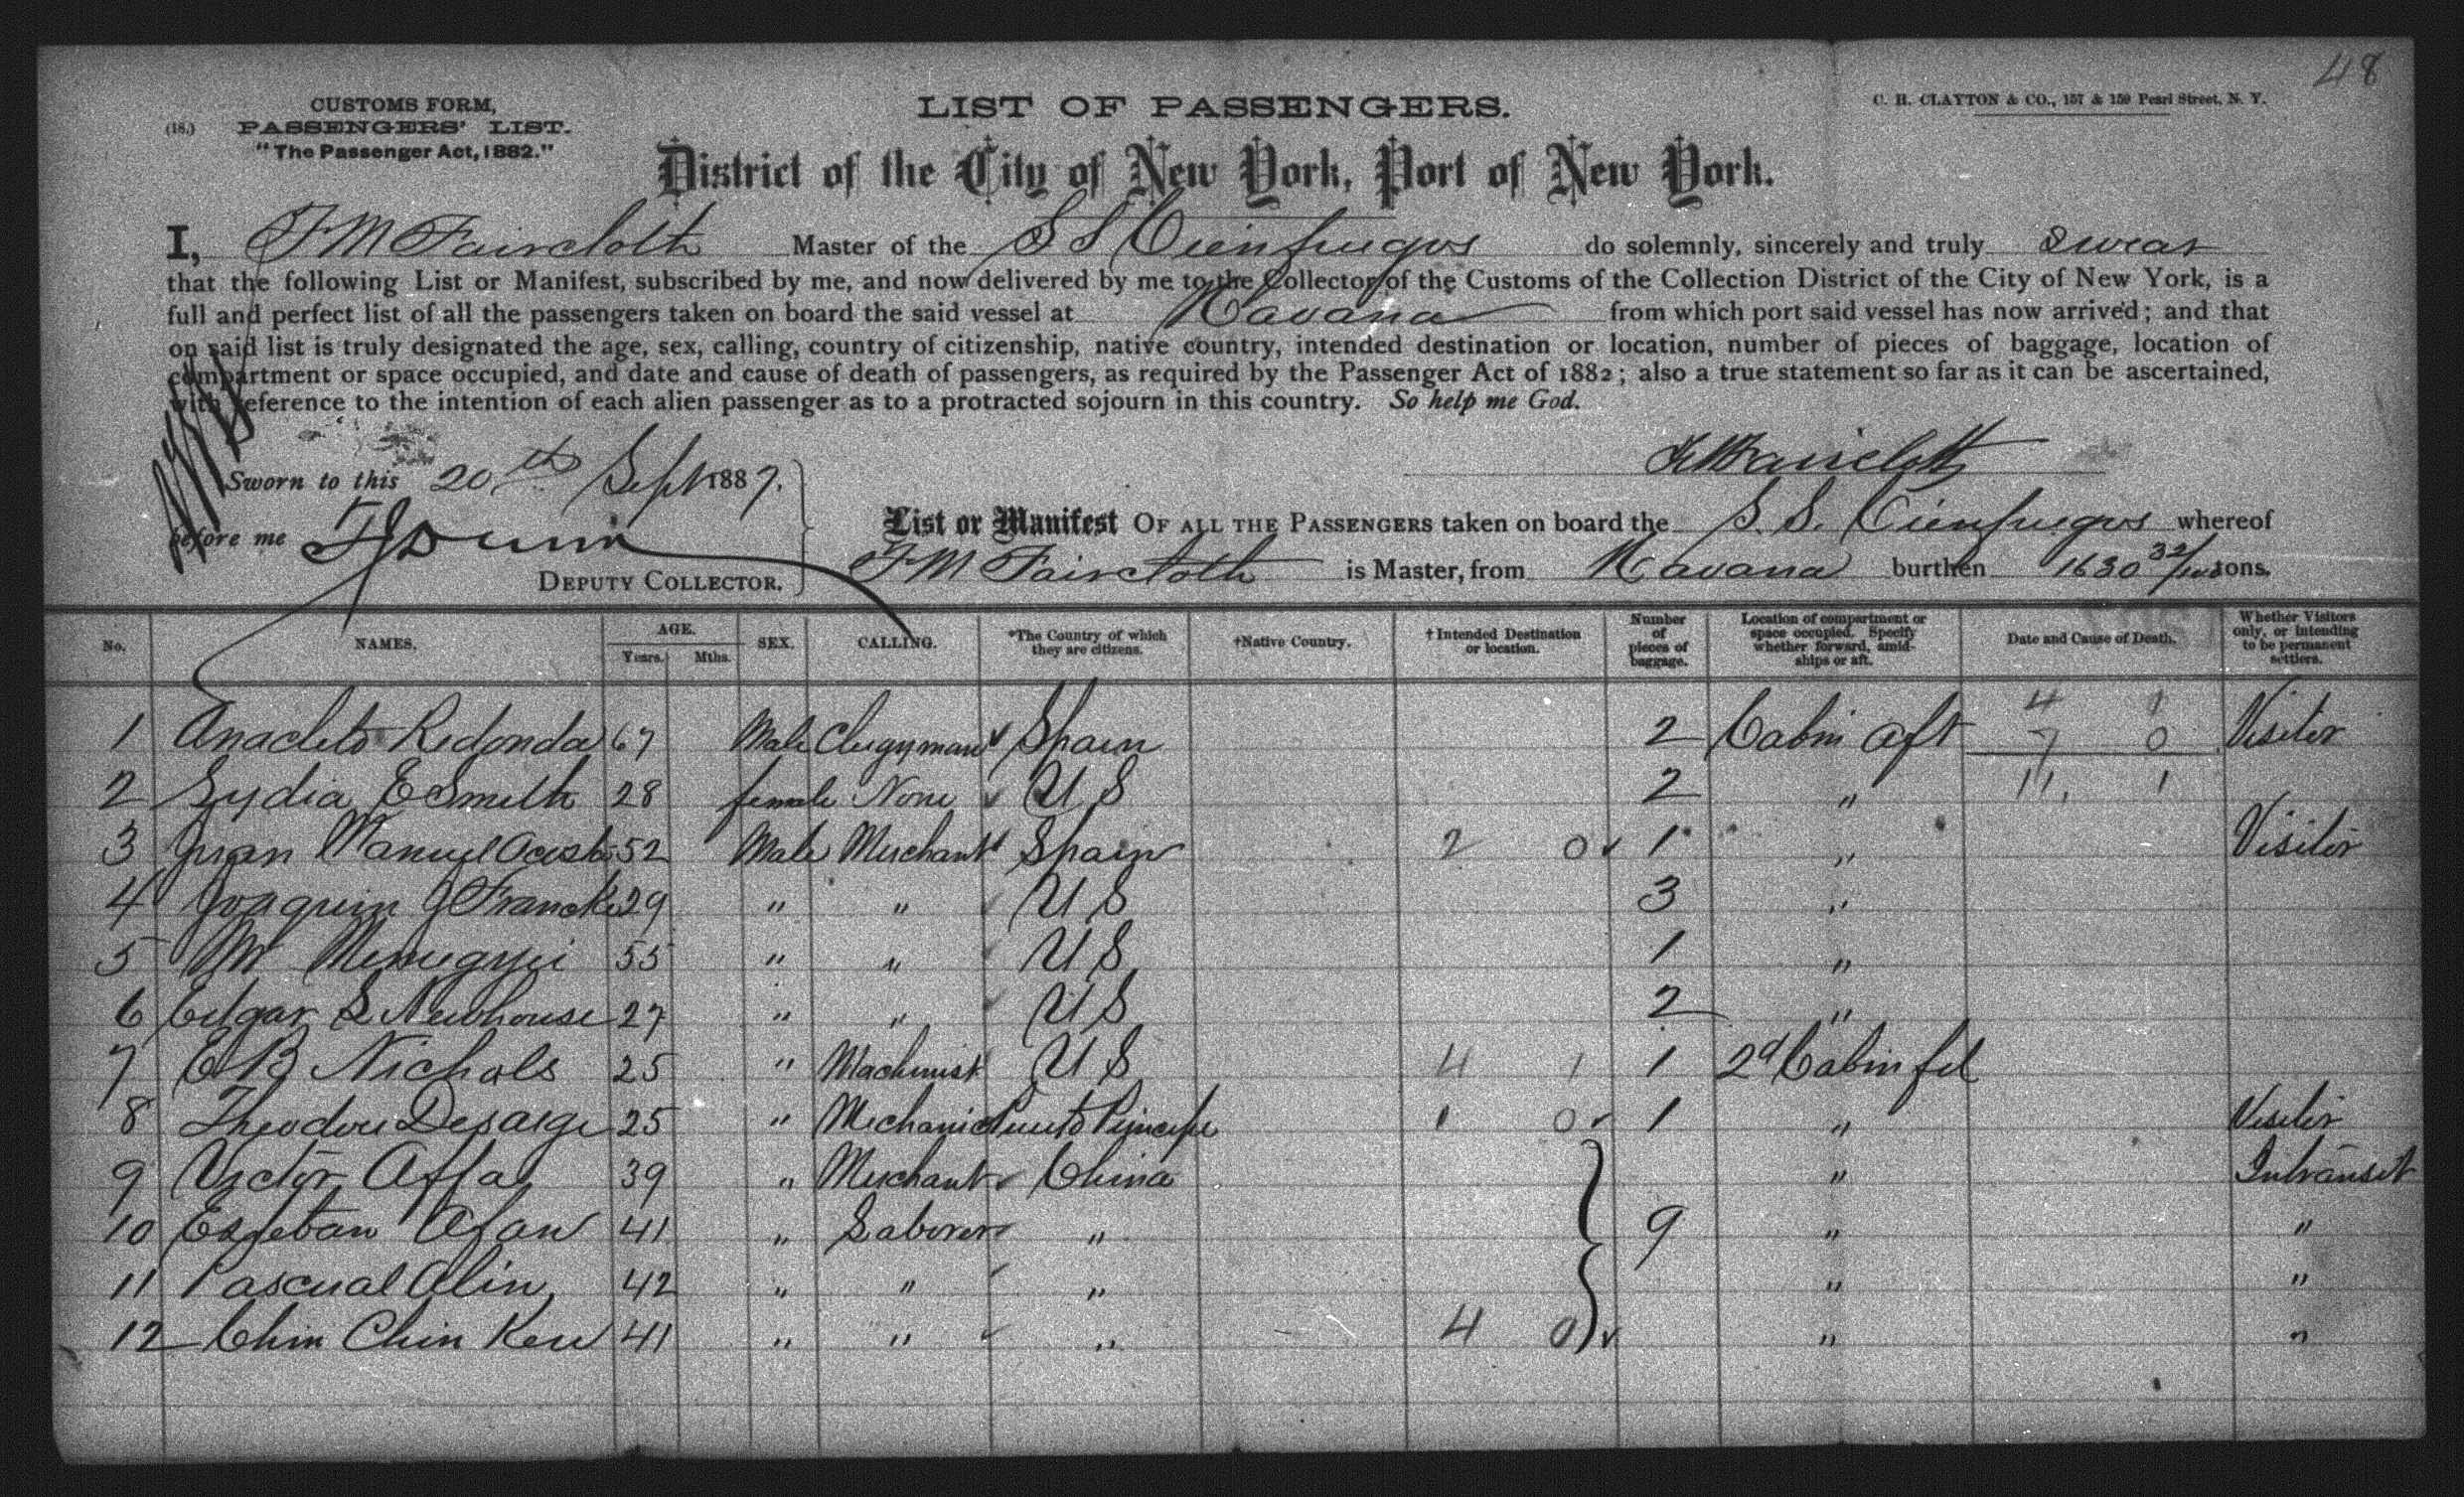 48
CUSTOMS FORM,
(18.) PASSENGERS' LIST.
"The Passenger Act, 1882."
LIST OF PASSENGERS.
C. H. CLAYTON & CO., 157 & 159 Pearl Street, N. Y.
District of the City of New York, Port of New York.
I, F M Faircloth Master of the S S Cienfuegos do solemnly, sincerely and truly swear
that the following List or Manifest, subscribed by me, and now delivered by me to the Collector of the Customs of the Collection District of the City of New York, is a
full and perfect list of all the passengers taken on board the said vessel at Havana from which port said vessel has now arrived; and that
on said list is truly designated the age, sex, calling, country of citizenship, native country, intended destination or location, number of pieces of baggage, location of
compartment or space occupied, and date and cause of death of passengers, as required by the Passenger Act of 1882; also a true statement so far as it can be ascertained,
with reference to the intention of each alien passenger as to a protracted sojourn in this country. So help me God.
F M Faircloth
Sworn to this 20th Sept 1887.
before me
DEPUTY COLLECTOR.
List or Manifest OF ALL THE PASSENGERS taken on board the S. S. Cienfuegos whereof
F M Faircloth is Master, from Havana burthen 1630 32/100 tons.
No. NAMES. AGE. Years. Mths. SEX. CALLING. *The Country of which they are citizens. †Native Country. †Intended Destination or location. Number of pieces of baggage. Location of compartment or space occupied. Specify whether forward, amidships or aft. Date and Cause of Death. Whether Visitors only, or intending to be permanent settlers.
1 Anacleto Redonda 67 Male Clergyman Spain 2 Cabin aft 4 1 7 0 Visitor
2 Lydia E Smith 28 female None U S 2 " 11 1
3 Juan Manuel 52 Male Merchant Spain 2 0 1 " Visitor
4 Joaquin J Francke 29 " " U S 3 "
5 M 55 " " U S 1 "
6 Edgar S Newhouse 27 " " U S 2 "
7 E B Nichols 25 " Machinist U S 4 1 1 2d Cabin fd
8 Theodore 25 " Mechanic Puerto Principe 1 0 1 " Visitor
9 Victor Affa 39 " Merchant China " Intransit
10 Esteban Afan 41 " Laborer " 9 " "
11 Pascual Alin 42 " " " " "
12 Chin Chin Kew 41 " " " 4 0 " "